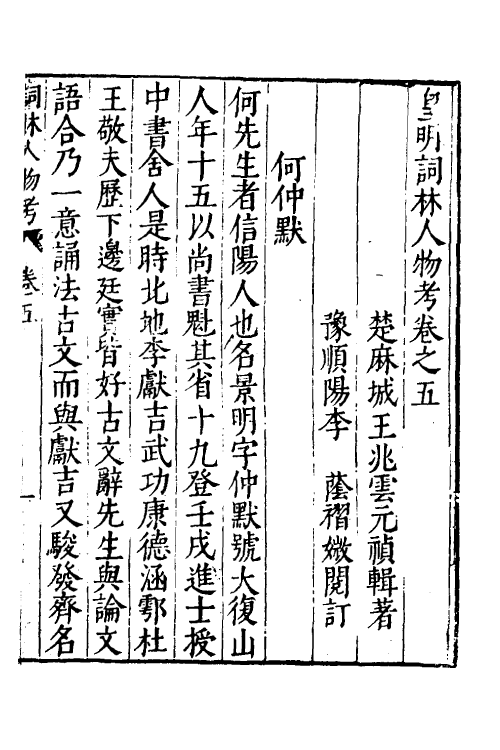 皇明詞林人物考卷之五
楚麻城王兆雲元禎輯著
豫順陽李　蔭襉媺閱訂
何仲默
何先生者信陽人也名景明字仲默號大復山
人年十五以尚書魁其省十九登壬戌進士授
中書舍人是時北地李獻吉武功康德涵鄠杜
王敬夫歷下邊廷實皆好古文辭先生與論文
語合乃一意誦法古文而與獻吉又駿發齊名
詞林人物考 卷五 一